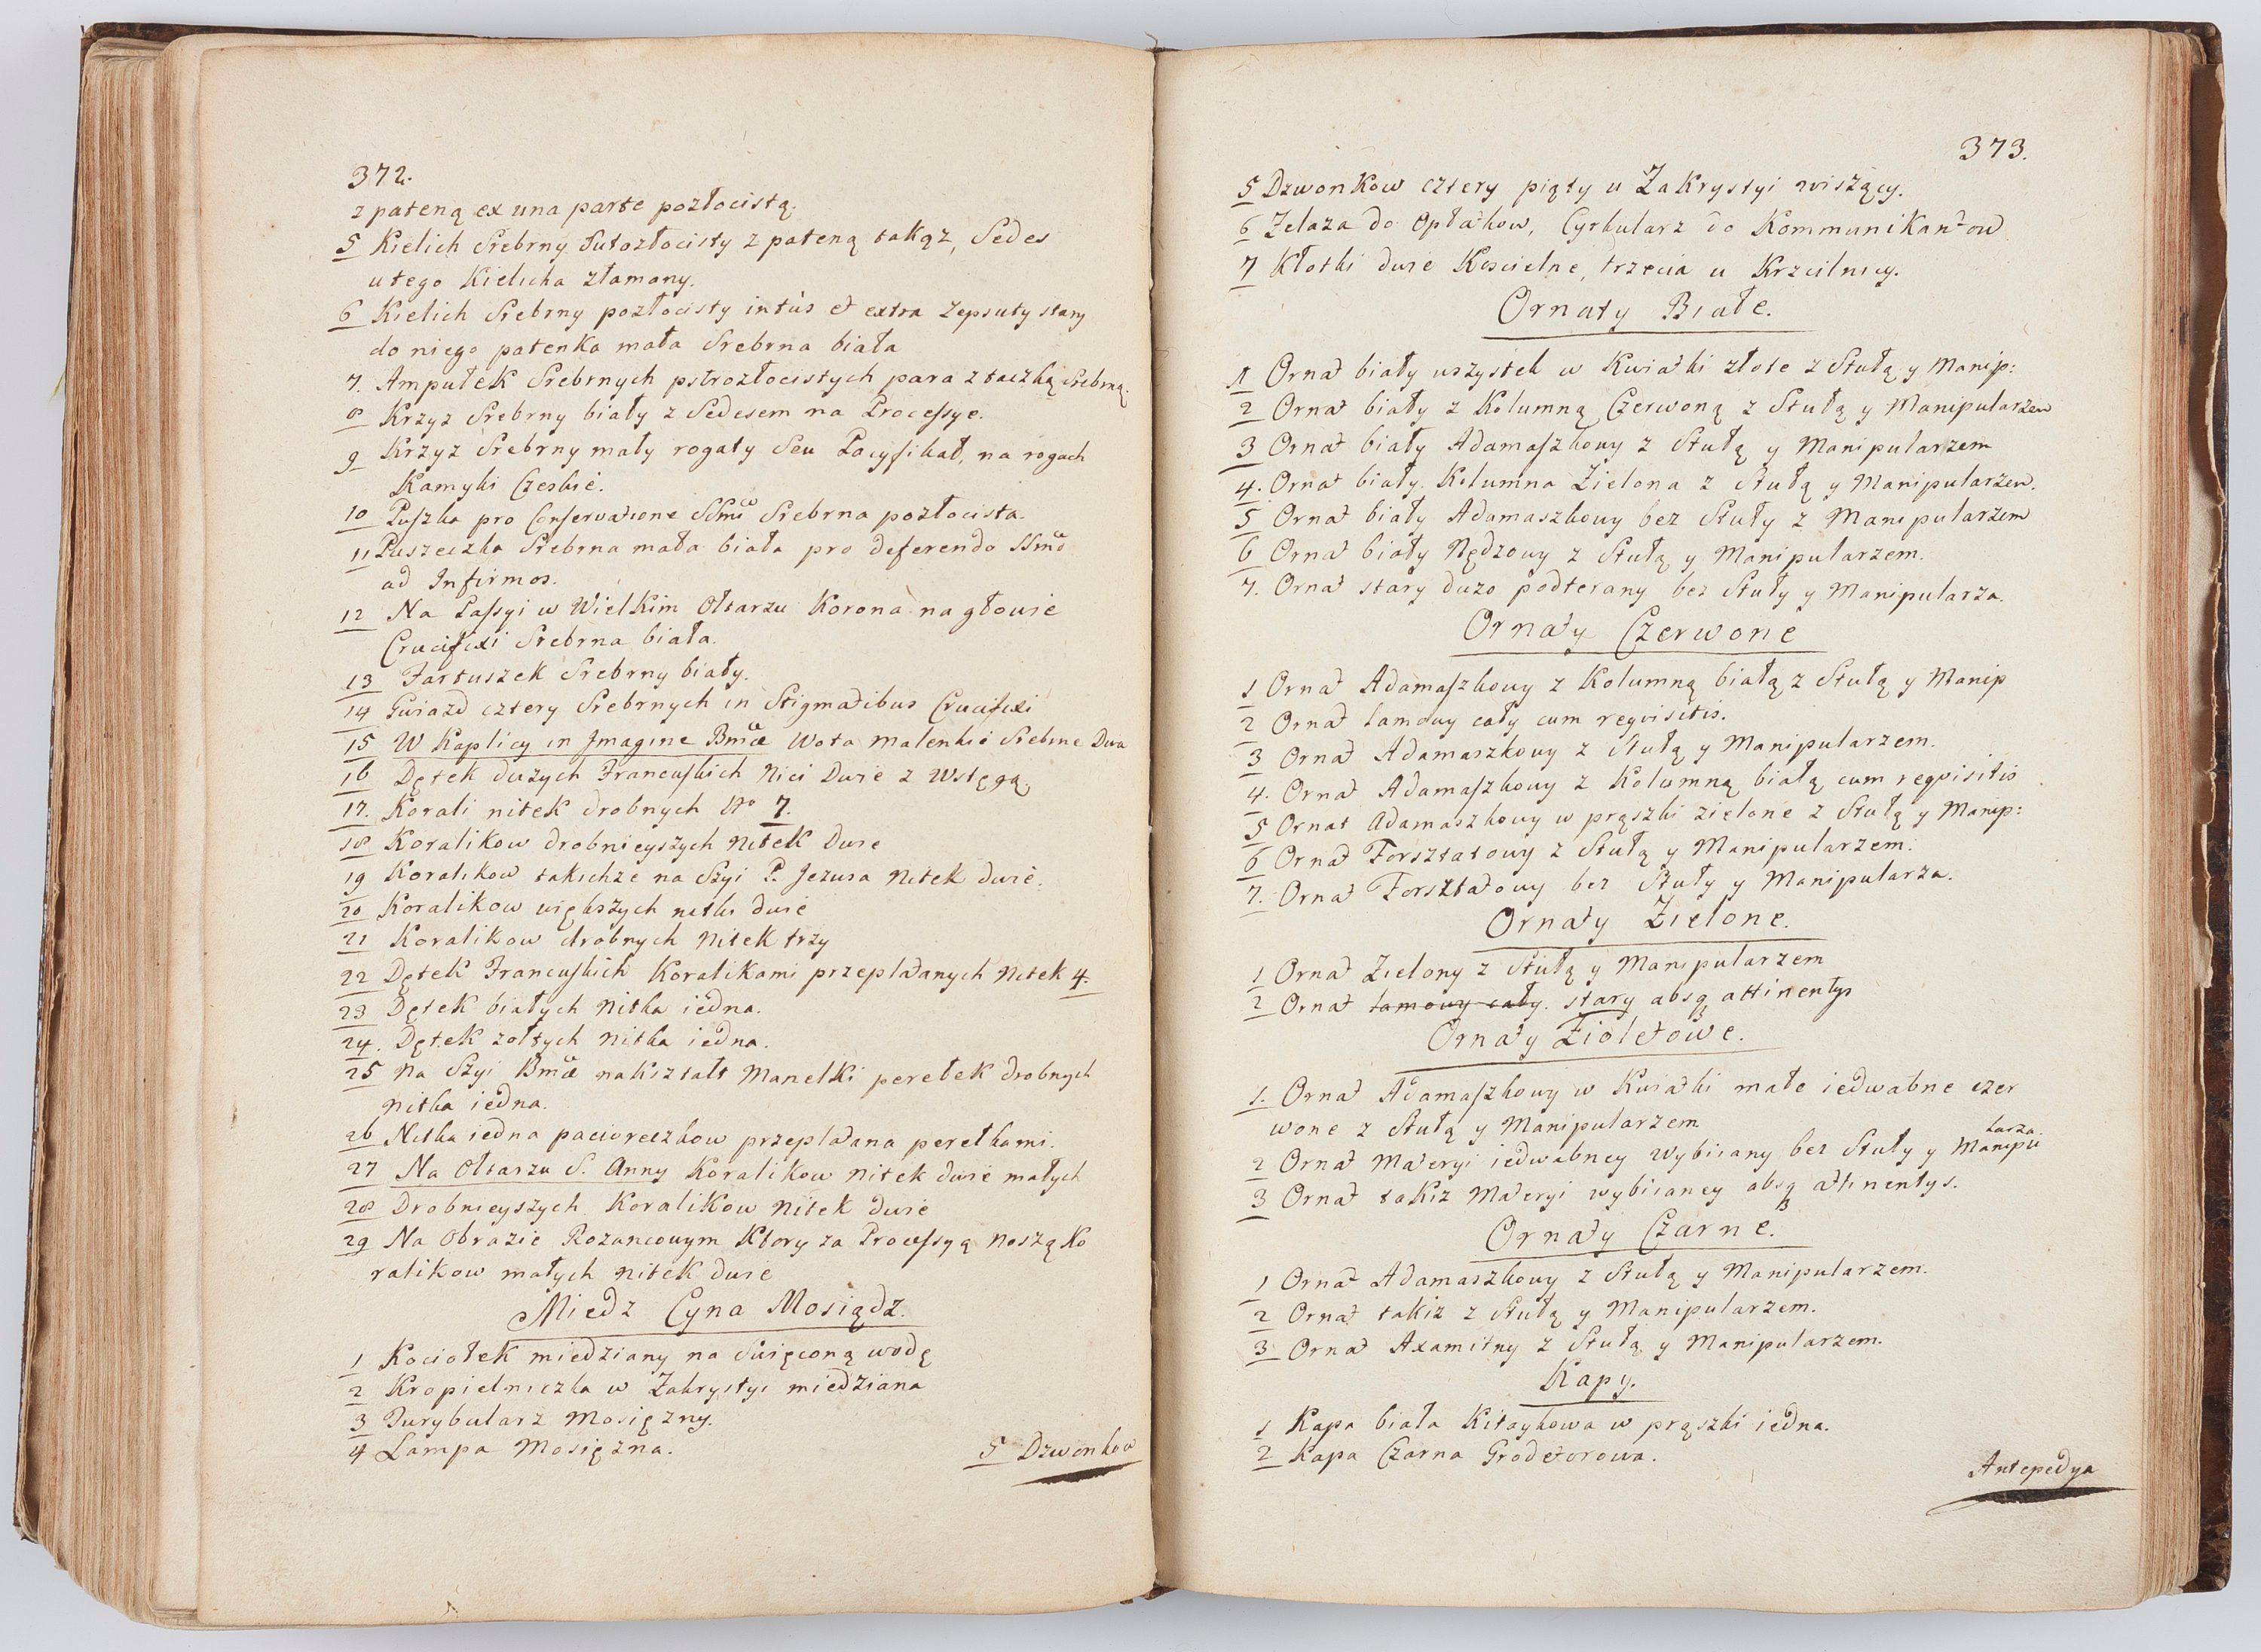 372.
z pateną ex una parte pozłocistą.
5 Kielich Srebrny Sutozłocisty z pateną takąz, Sedes
u tego Kielicha złamany.
6 Kielich Srebrny pozłocisty intùs et extra Zepsuty stary
do niego patenka mała Srebrna biała
7. Ampułek Srebrnych pstrozłocistych para z taczką srebrną.
8 Krzyz Srebrny biały z Sedesem na Processye.
9 Krzyz Srebrny mały rogaty Seu Pacyfikał, na rogach
Kamyki Czeskie.
10 Puszka pro Conservatione SSmi Srebrna pozłocista.
11 Puszeczka Srebrna mała biała pro deferendo SSmo
ad Infirmos.
12 Na Passyi w Wielkim Ołtarzu Korona na głowie
Crucifixi Srebrna biała.
13 Fartuszek Srebrny biały.
14 Gwiazd cztery Srebrnych in Stigmatibus Crucifixi
15 W Kaplicy in Imagine Bmæ Wota Malenkie Srebrne Dwa
16 Dętek duzych Francuskich Nici Dwie z Wstęgą.
17. Korali nitek drobnych No 7.
18 Koralikow drobnieyszych Nitek Dwie
19 Koralikow takichze na Szyi P. Jezusa Nitek dwie.
20 Koralikow większych nitki dwie
21 Koralikow drobnych Nitek trzy
22 Dętek Francuskich Koralikami przeplatanych Nitek 4.
23 Dętek białych Nitka iedna.
24. Dętek zołtych Nitka iedna.
25 Na Szyi Bmæ nakształt Manelki perełek drobnych
Nitka iedna.
26 Nitka iedna pacioreczkow przeplatana perełkami.
27 Na Ołtarzu S. Anny Koralikow Nitek dwie małych
28 Drobnieyszych Koralikow Nitek dwie
29 Na Obrazie Rozancowym Ktory za Processyą Noszą Ko
ralikow małych Nitek dwie
Miedz Cyna Mosiądz.
1 Kociołek miedziany na Swięconą wodę
2 Kropielniczka w Zakrystyi miedziana
3 Turybularz Mosięzny.
4 Lampa Mosięzna.
5 Dzwonkow
373.
5 Dzwonkow cztery piąty u Zakrystyi wiszący.
6 Zelaza do Opłatkow, Cyrkularz do Kommunikantow
7 Kłotki dwie Koscielne, trzecia u Krzcilnicy.
Ornaty Białe.
1 Ornat biały wszystek w Kwiatki złote z Stułą y Manip:
2 Ornat biały z Kolumną Czerwoną z Stułą y Manipularzem
3 Ornat biały Adamaszkowy z Stułą y Manipularzem
4. Ornat biały Kolumna Zielona z Stułą y Manipularzem.
5 Ornat biały Adamaszkowy bez Stuły z Manipularzem
6 Ornat biały Nędzowy z Stułą y Manipularzem.
7. Ornat stary duzo podterany bez Stuły y Manipularza.
Ornaty Czerwone
1 Ornat Adamaszkowy z Kolumną białą z Stułą y Manip
2 Ornat lamowy cały cum reqvisitis.
3 Ornat Adamaszkowy z Stułą y Manipularzem.
4. Ornat Adamaszkowy z Kolumną białą cum reqvisitis
5 Ornat Adamaszkowy w prąszki zielone z Stułą y Manip:
6 Ornat Forsztatowy z Stułą y Manipularzem.
7. Ornat Forsztatowy bez Stuły y Manipularza.
Ornaty Zielone.
1 Ornat Zielony z Stułą y Manipularzem
2 Ornat lamowy cały. stary absq attinentys
Ornaty Fioletowe.
1. Ornat Adamaszkowy w Kwiatki małe iedwabne czer
wone z Stułą y Manipularzem
2 Ornat Materyi iedwabney Wybiiany bez Stuły y Manipu
larza.
3 Ornat takiz Materyi wybiianey absq attinentys.
Ornaty Czarne.
1 Ornat Adamaszkowy z Stułą y Manipularzem.
2 Ornat takiz z Stułą y Manipularzem.
3 Ornat Axamitny z Stułą y Manipularzem.
Kapy.
1 Kapa biała Kitaykowa w prąszki iedna.
2 Kapa Czarna Grodetorowa.
Antepedya